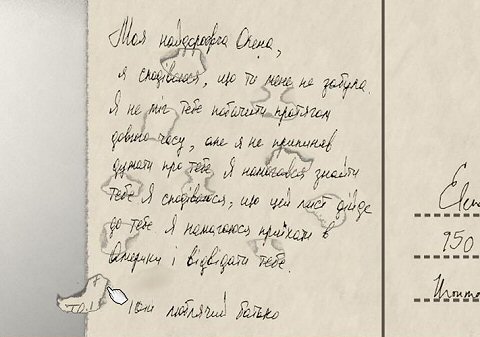 Моя найдорожча Олена,
я сподіваюся, що ти мене не забула.
Я не міг тебе побачити протягом
довгого часу, але я не припиняв
думати про тебе. Я намагався знайти
тебе. Я сподіваюся, що цей лист дійде
до тебе. Я намагаюся приїхати в
Америку і відвідати тебе.
Твій люблячий батько
950